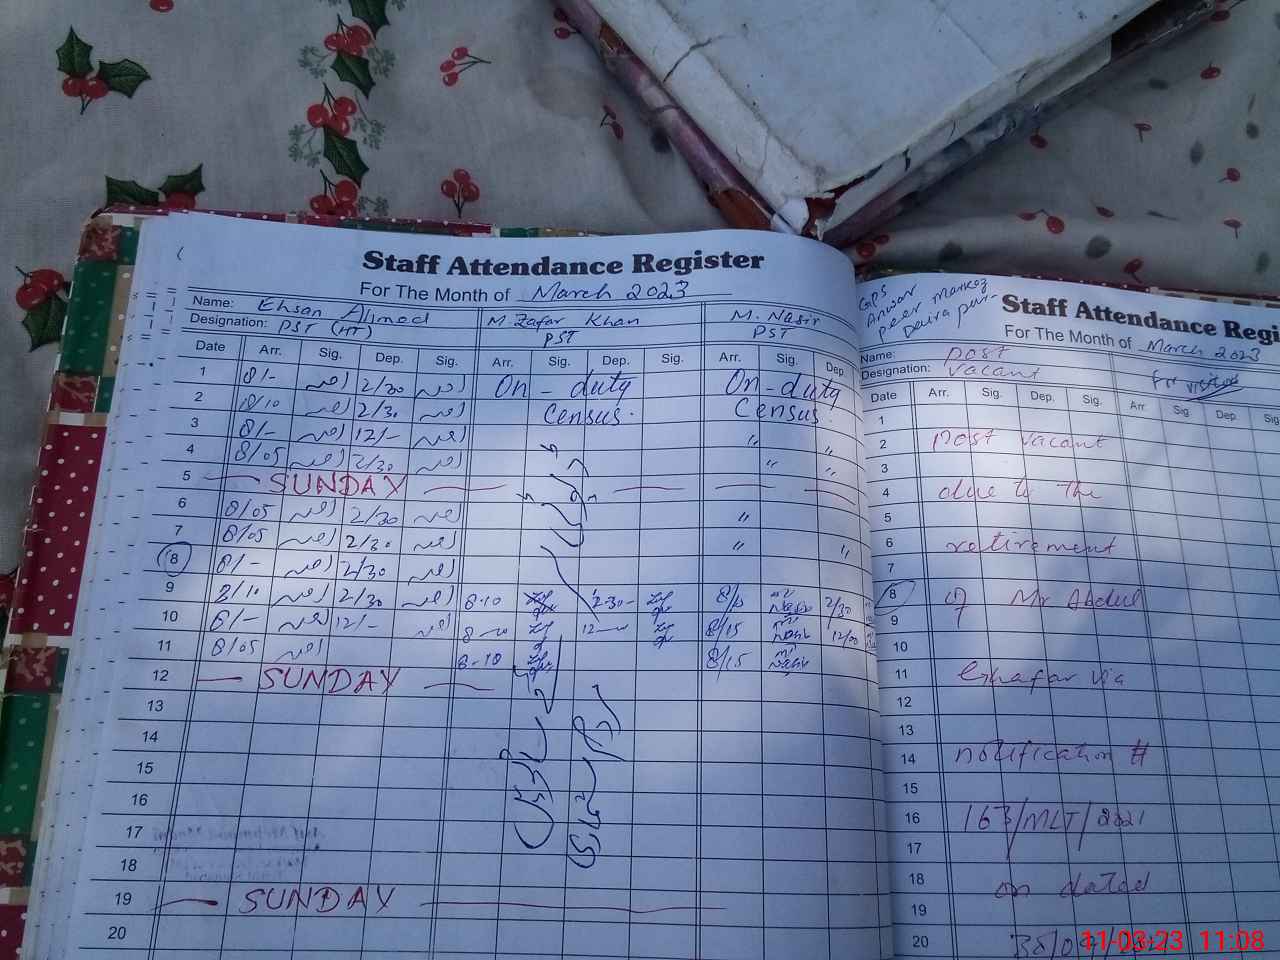 Staff Attendance Register
For The Month of March 2023
Name: Ehsan Ahmed M. Zafar Khan M. Nasir
Designation: PST (HT) PST PST
Date Arr. Sig. Dep. Sig. Arr. Sig. Dep. Sig. Arr. Sig. Dep.
1 8/- 2/30 On - duty On - duty
2 8/10 2/30 Census. Census.
3 8/- 12/- " "
4 8/05 2/30 " "
5 SUNDAY
6 8/05 2/30 "
7 8/05 2/30 " "
8 8/- 2/30
9 8/10 2/30 8-10 2-30- 2/30
10 8/- 12/- 8/15 Nasir 12/00
11 8/05 8-10 8/15 Nasir
12 SUNDAY
13
14
15
16
17
18
19 SUNDAY
20
GPS
Anwar
peer Markaz
Staff Attendance Regi
For The Month of March 2023
Name: Post
Designation: Vacant for visitors
Date Arr. Sig. Dep. Sig. Arr. Sig Dep. Sig.
1
2 post vacant
3
4 due to the
5
6 retirement
7
8 of Mr Abdul
9
10
11 Ghafar via
12
13
14 notification #
15
16 163/MLT/2021
17
18 on dated
19
20
11-03-23 11:08